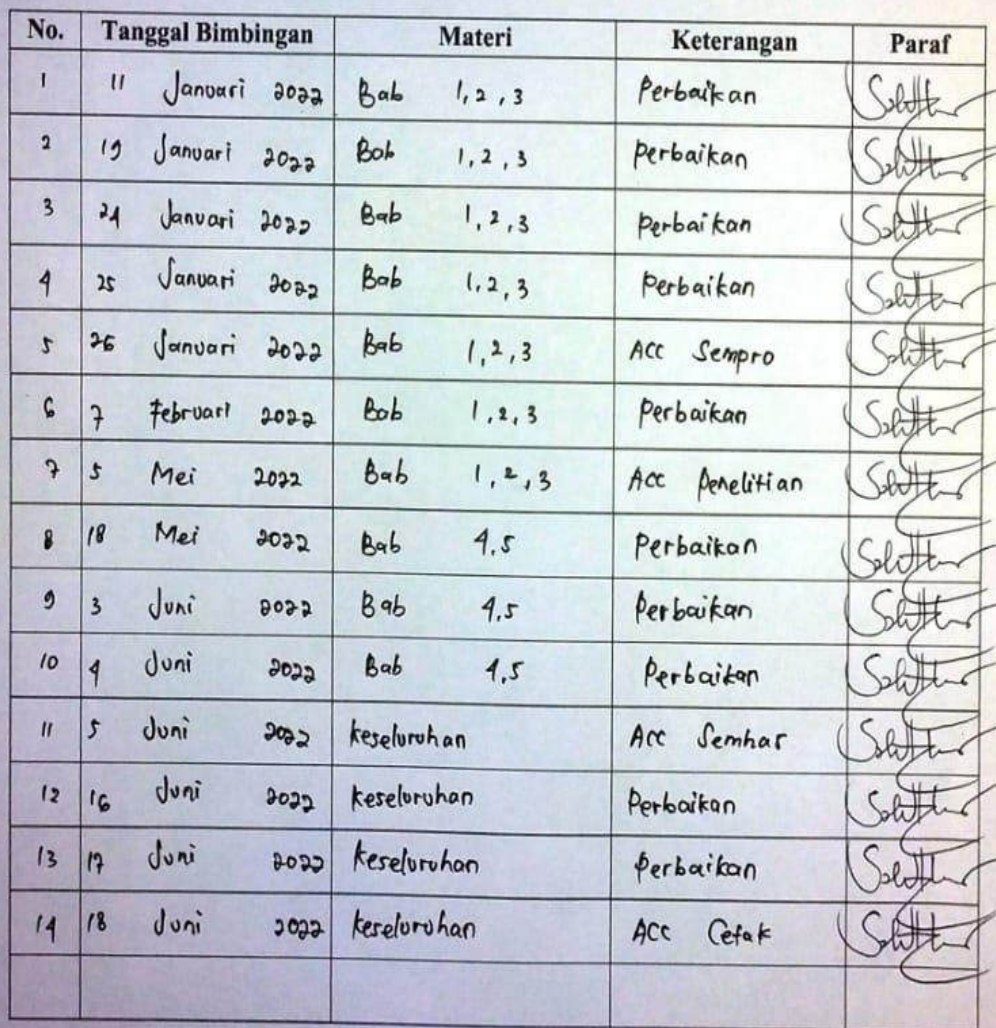 No. Tanggal Bimbingan Materi Keterangan Paraf
1 11 Januari 2022 Bab 1, 2, 3 Perbaikan
2 19 Januari 2022 Bab 1, 2, 3 Perbaikan
3 24 Januari 2022 Bab 1, 2, 3 Perbaikan
4 25 Januari 2022 Bab 1, 2, 3 Perbaikan
5 26 Januari 2022 Bab 1, 2, 3 ACC Sempro
6 7 Februari 2022 Bab 1, 2, 3 Perbaikan
7 5 Mei 2022 Bab 1, 2, 3 ACC Penelitian
8 18 Mei 2022 Bab 4,5 Perbaikan
9 3 Juni 2022 Bab 4,5 Perbaikan
10 4 Juni 2022 Bab 4,5 Perbaikan
11 5 Juni 2022 keseluruhan ACC Semhas
12 16 Juni 2022 keseluruhan Perbaikan
13 17 Juni 2022 keseluruhan Perbaikan
14 18 Juni 2022 keseluruhan ACC Cetak